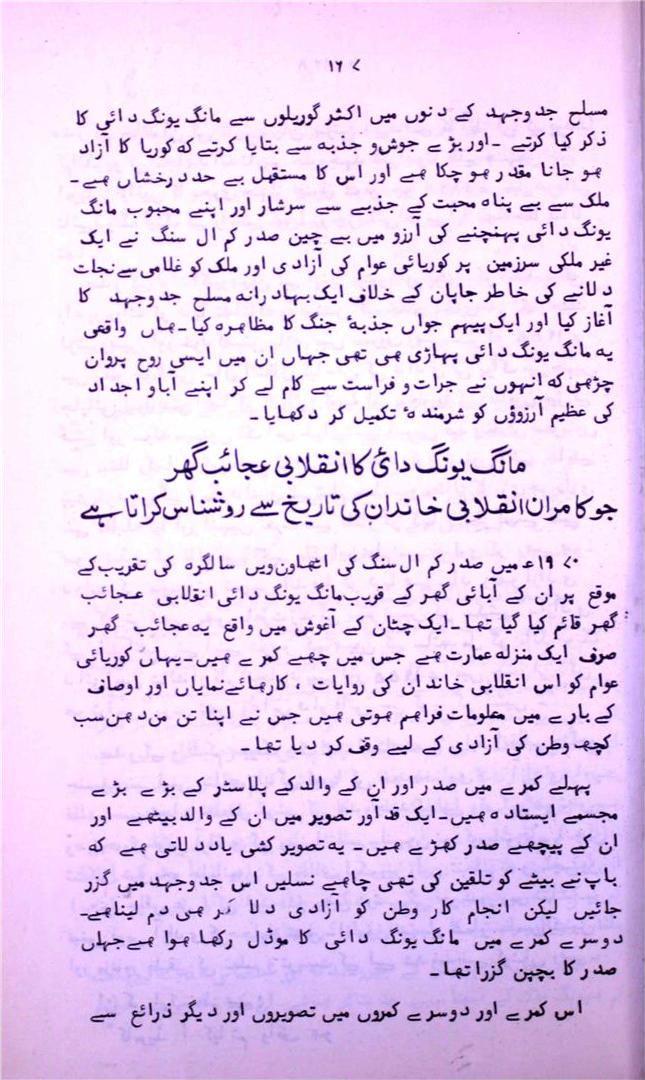 ۱۶۷
مسلح جدوجہد کے دنوں میں اکثر گوریلوں سے مانگ یونگ دائی کا
ذکر کیا کرتے ۔ اور بڑے جوش و جذبہ سے بتایا کرتے کہ کوریا کا آزاد
ہو جانا مقدر ہو چکا ہے اور اس کا مستقبل بے حد درخشاں ہے ۔
ملک سے بے پناہ محبت کے جذبے سے سرشار اور اپنے محبوب مانگ
یونگ دائی پہنچنے کی آرزو میں بے چین صدر کم ال سنگ نے ایک
غیر ملکی سرزمین پر کوریائی عوام کی آزادی اور ملک کو غلامی سے نجات
دلانے کی خاطر جاپان کے خلاف ایک بہادرانہ مسلح جدوجہد کا
آغاز کیا اور ایک پیہم جواں جذبۂ جنگ کا مظاہرہ کیا ۔ ہاں واقعی
یہ مانگ یونگ دائی پہاڑی ہی تھی جہاں ان میں ایسی روح پروان
چڑھی کہ انہوں نے جرات و فراست سے کام لے کر اپنے آباو اجداد
کی عظیم آرزوؤں کو شرمندۂ تکمیل کر دکھایا ۔
مانگ یونگ دائی کا انقلابی عجائب گھر
جو کامران انقلابی خاندان کی تاریخ سے روشناس کراتا ہے
۱۹۷۰ء میں صدر کم ال سنگ کی اٹھاون ویں سالگرہ کی تقریب کے
موقع پر ان کے آبائی گھر کے قریب مانگ یونگ دائی انقلابی عجائب
گھر قائم کیا گیا تھا ۔ ایک چٹان کے آغوش میں واقع یہ عجائب گھر
صرف ایک منزلہ عمارت ہے جس میں چھے کمرے ہیں ۔ یہاں کوریائی
عوام کو اس انقلابی خاندان کی روایات ، کارہائے نمایاں اور اوصاف
کے بارے میں معلومات فراہم ہوتی ہیں جس نے اپنا تن من دھن سب
کچھ وطن کی آزادی کے لیے وقف کر دیا تھا ۔
پہلے کمرے میں صدر اور ان کے والد کے پلاسٹر کے بڑے بڑے
مجسمے ایستادہ ہیں ۔ ایک قد آور تصویر میں ان کے والد بیٹھے اور
ان کے پیچھے صدر کھڑے ہیں ۔ یہ تصویر کشی یاد دلاتی ہے کہ
باپ نے بیٹے کو تلقین کی تھی چاہے نسلیں اس جدوجہد میں گزر
جائیں لیکن انجام کار وطن کو آزادی دلا کر ہی دم لینا ہے ۔
دوسرے کمرے میں مانگ یونگ دائی کا موڈل رکھا ہوا ہے جہاں
صدر کا بچپن گزرا تھا ۔
اس کمرے اور دوسرے کمروں میں تصویروں اور دیگر ذرائع سے